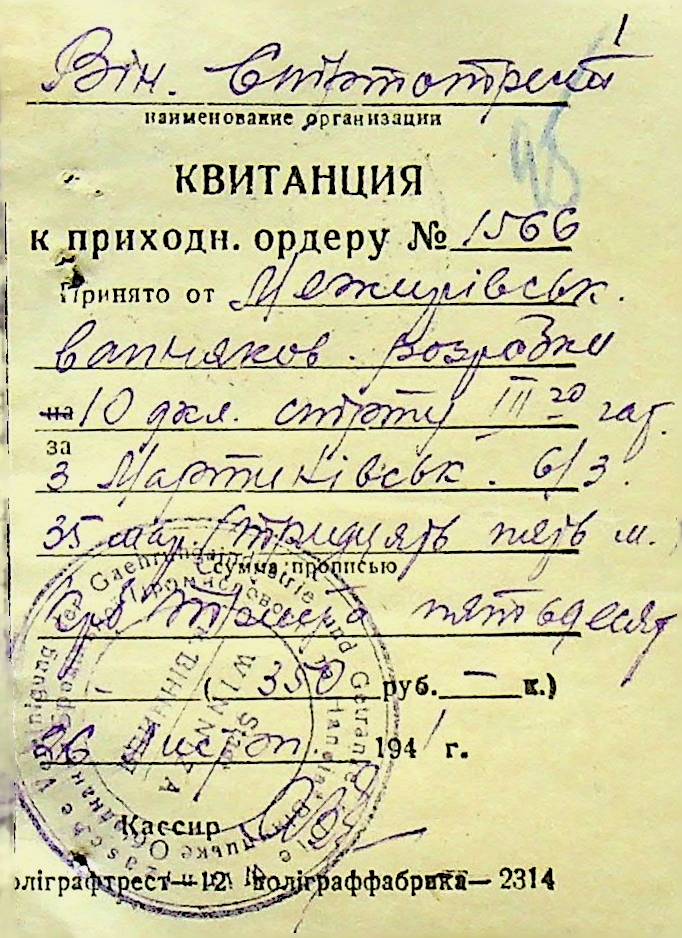 1
Він. Спиртотрест
наименование организации
КВИТАНЦИЯ
к приходн. ордеру № 1566
Принято от Межирівськ.
вапняков. розробки
на 10 дкл. спирту III
за
з Мартинівськ. б/з.
35 мар. (тридцять пять м.)
Сумма прописью
триста пятьдесят
(350 руб. — к.)
26 Листоп. 1941 г.
Кассир
WINNIZA
Поліграфтрест—12 поліграффабрика—2314